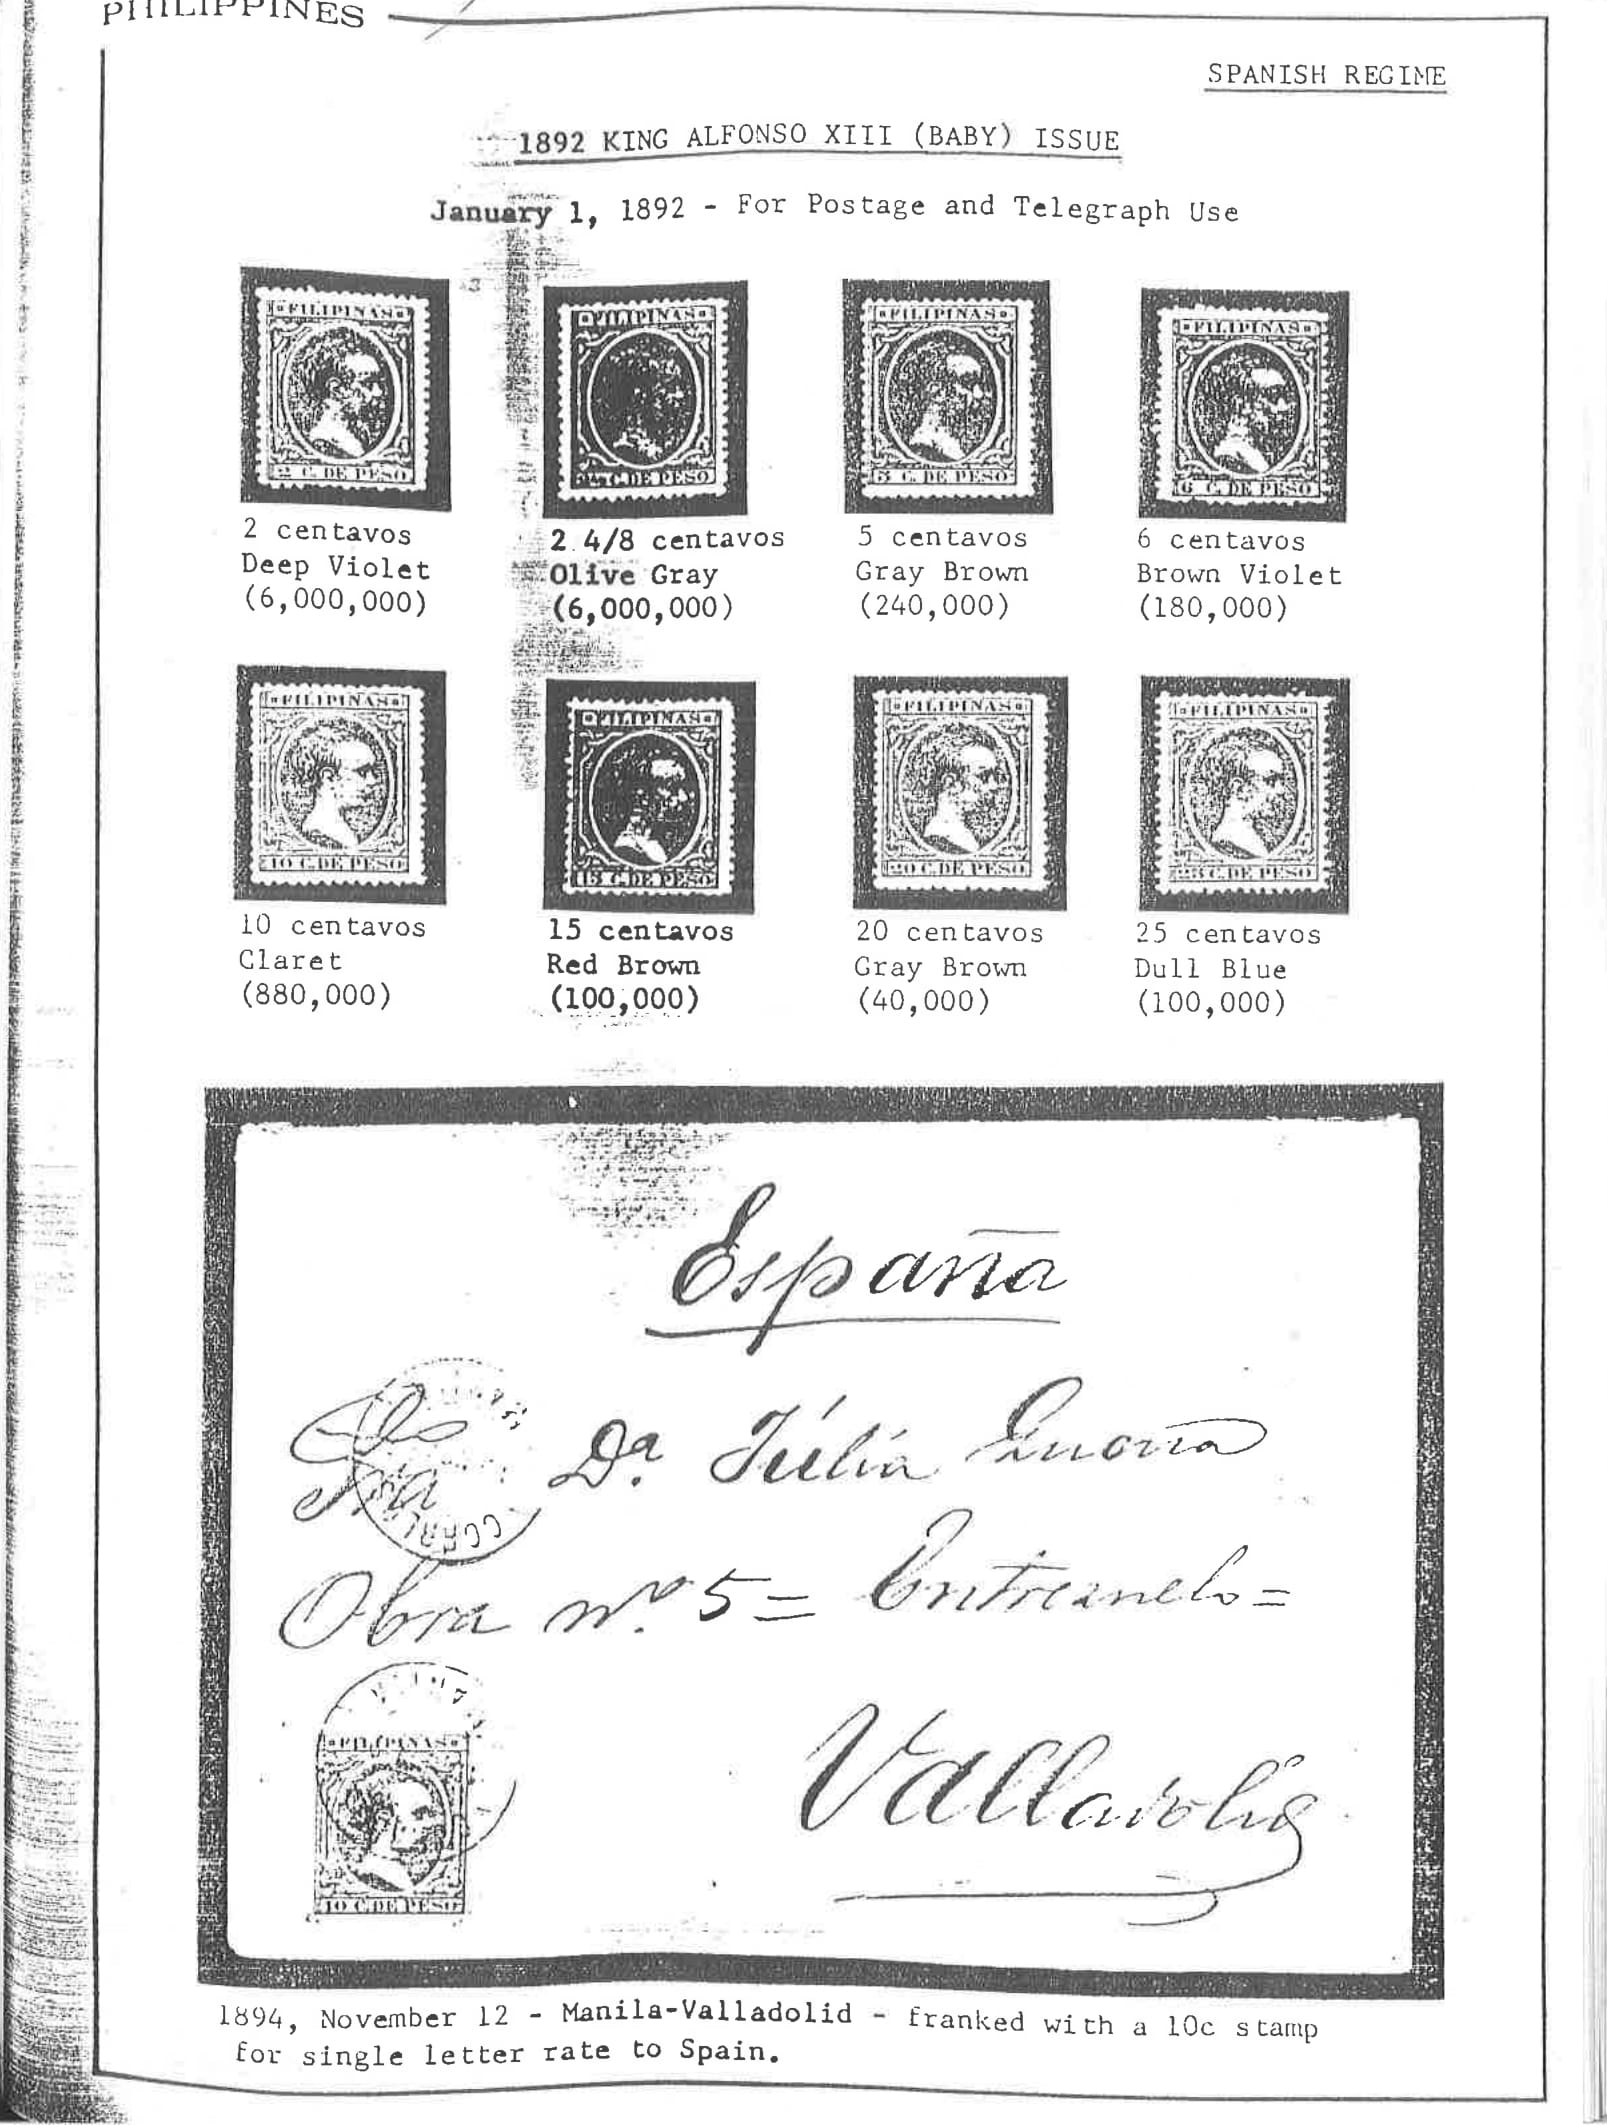 PHILIPPINES
SPANISH REGIME
1892 KING ALFONSO XIII (BABY) ISSUE
January 1, 1892 - For Postage and Telegraph Use
FILIPINAS FILIPINAS FILIPINAS FILIPINAS
2 C. DE PESO C. DE PESO 5 C. DE PESO 6 C. DE PESO
2 centavos 2 4/8 centavos 5 centavos 6 centavos
Deep Violet Olive Gray Gray Brown Brown Violet
(6,000,000) (6,000,000) (240,000) (180,000)
FILIPINAS FILIPINAS FILIPINAS FILIPINAS
10 C. DE PESO 15 C. DE PESO 20 C. DE PESO 25 C. DE PESO
10 centavos 15 centavos 20 centavos 25 centavos
Claret Red Brown Gray Brown Dull Blue
(880,000) (100,000) (40,000) (100,000)
España
Sra Dª Júlia
Obra nº 5 =
FILIPINAS
10 C. DE PESO
Valladolid
1894, November 12 - Manila-Valladolid - franked with a 10c stamp
for single letter rate to Spain.